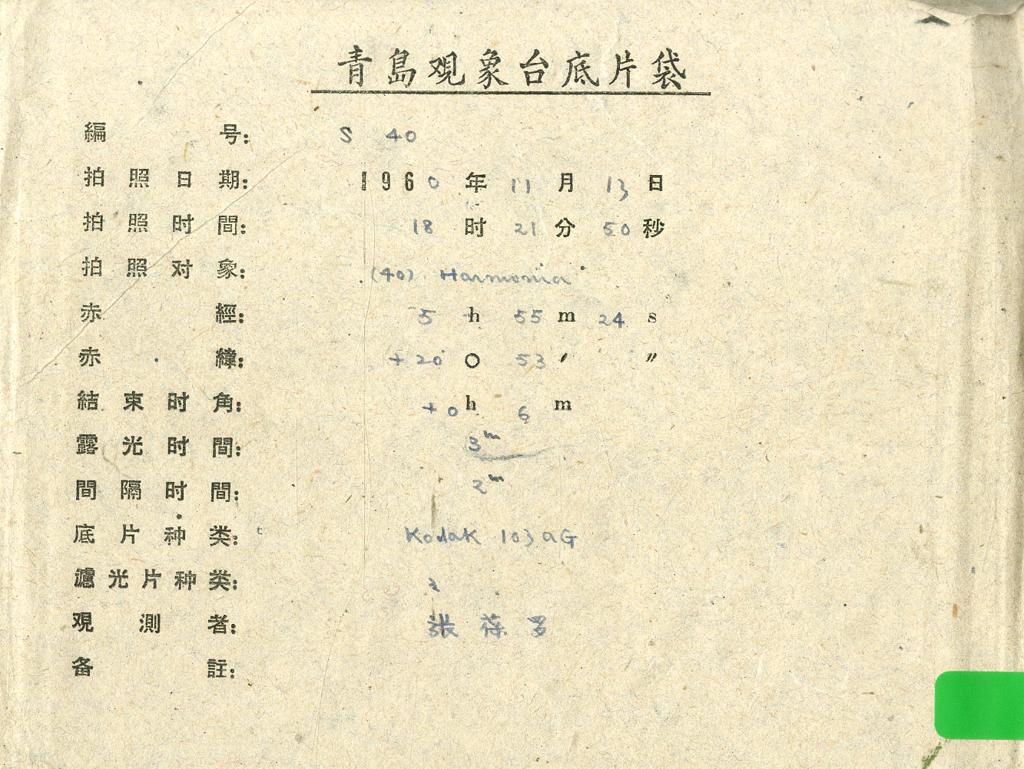 青島观象台底片袋
編 号: S 40
拍照日期: 1960年11月13日
拍照时間: 18时21分50秒
拍照对象: (40) Harmonia
赤 經: 5 h 55 m 24 s
赤 緯: +20 ° 53 ′ ″
結束时角: +0 h 6 m
露光时間: 3m
間隔时間: 2m
底片种类: Kodak 103aG
濾光片种类:
观測者: 張
备註: